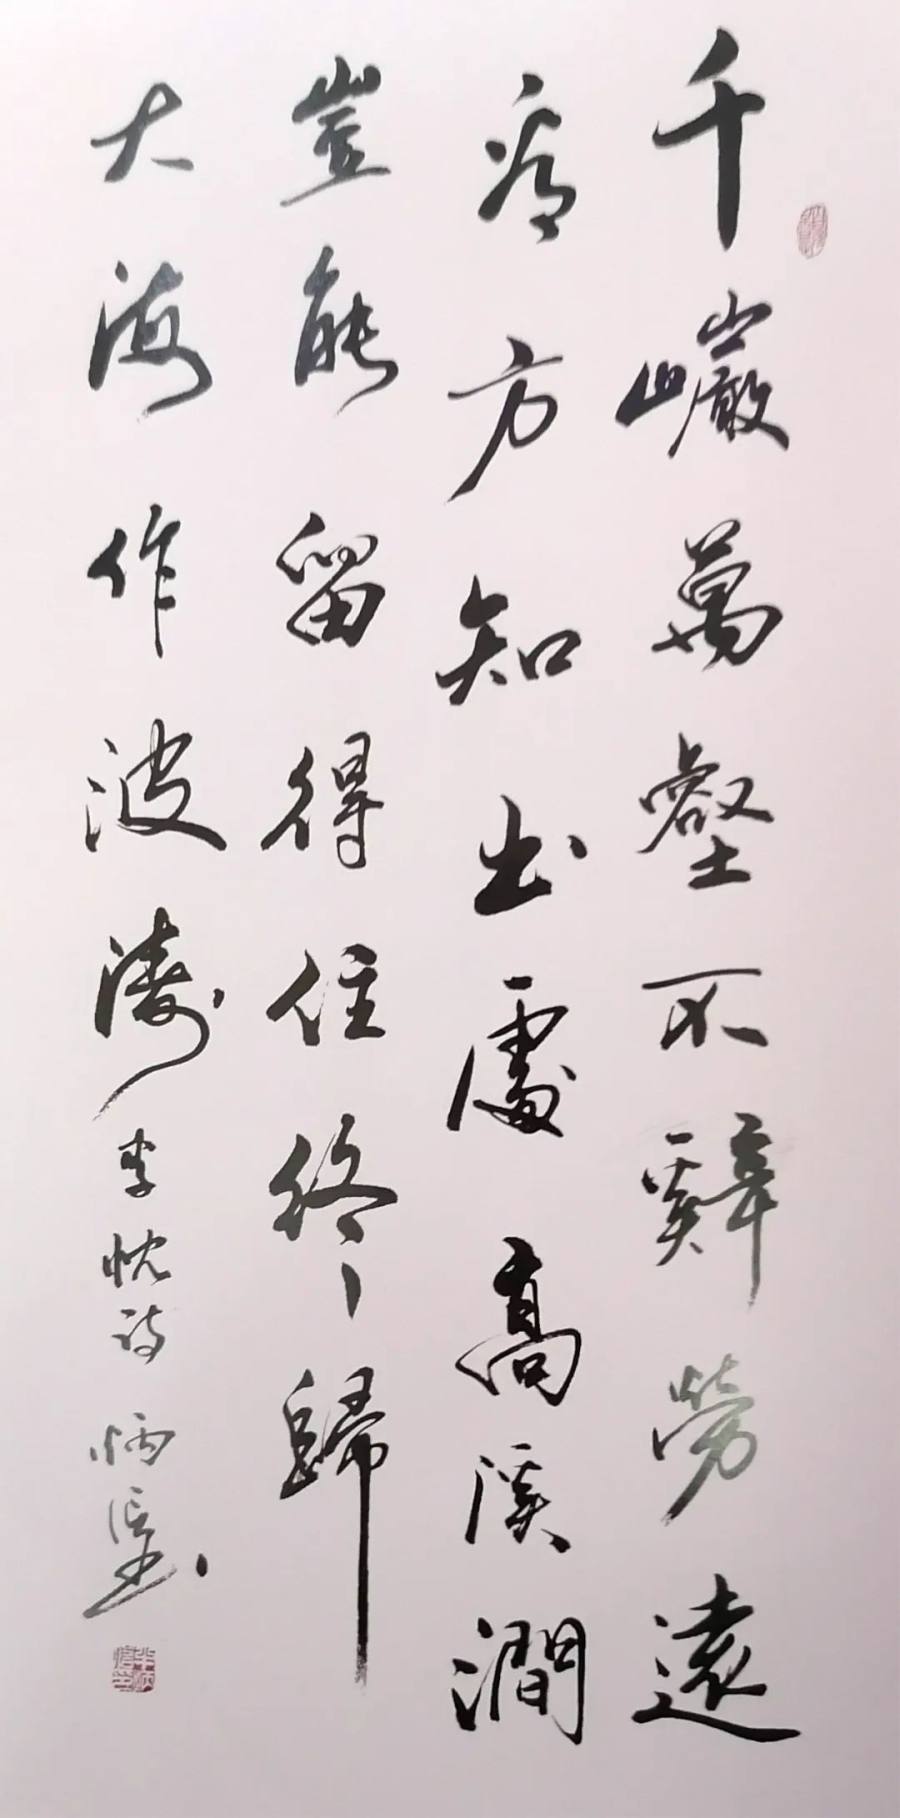 千巖萬壑不辭勞遠
看方知出處高溪澗
豈能留得住終歸
大海作波濤李忱詩炳